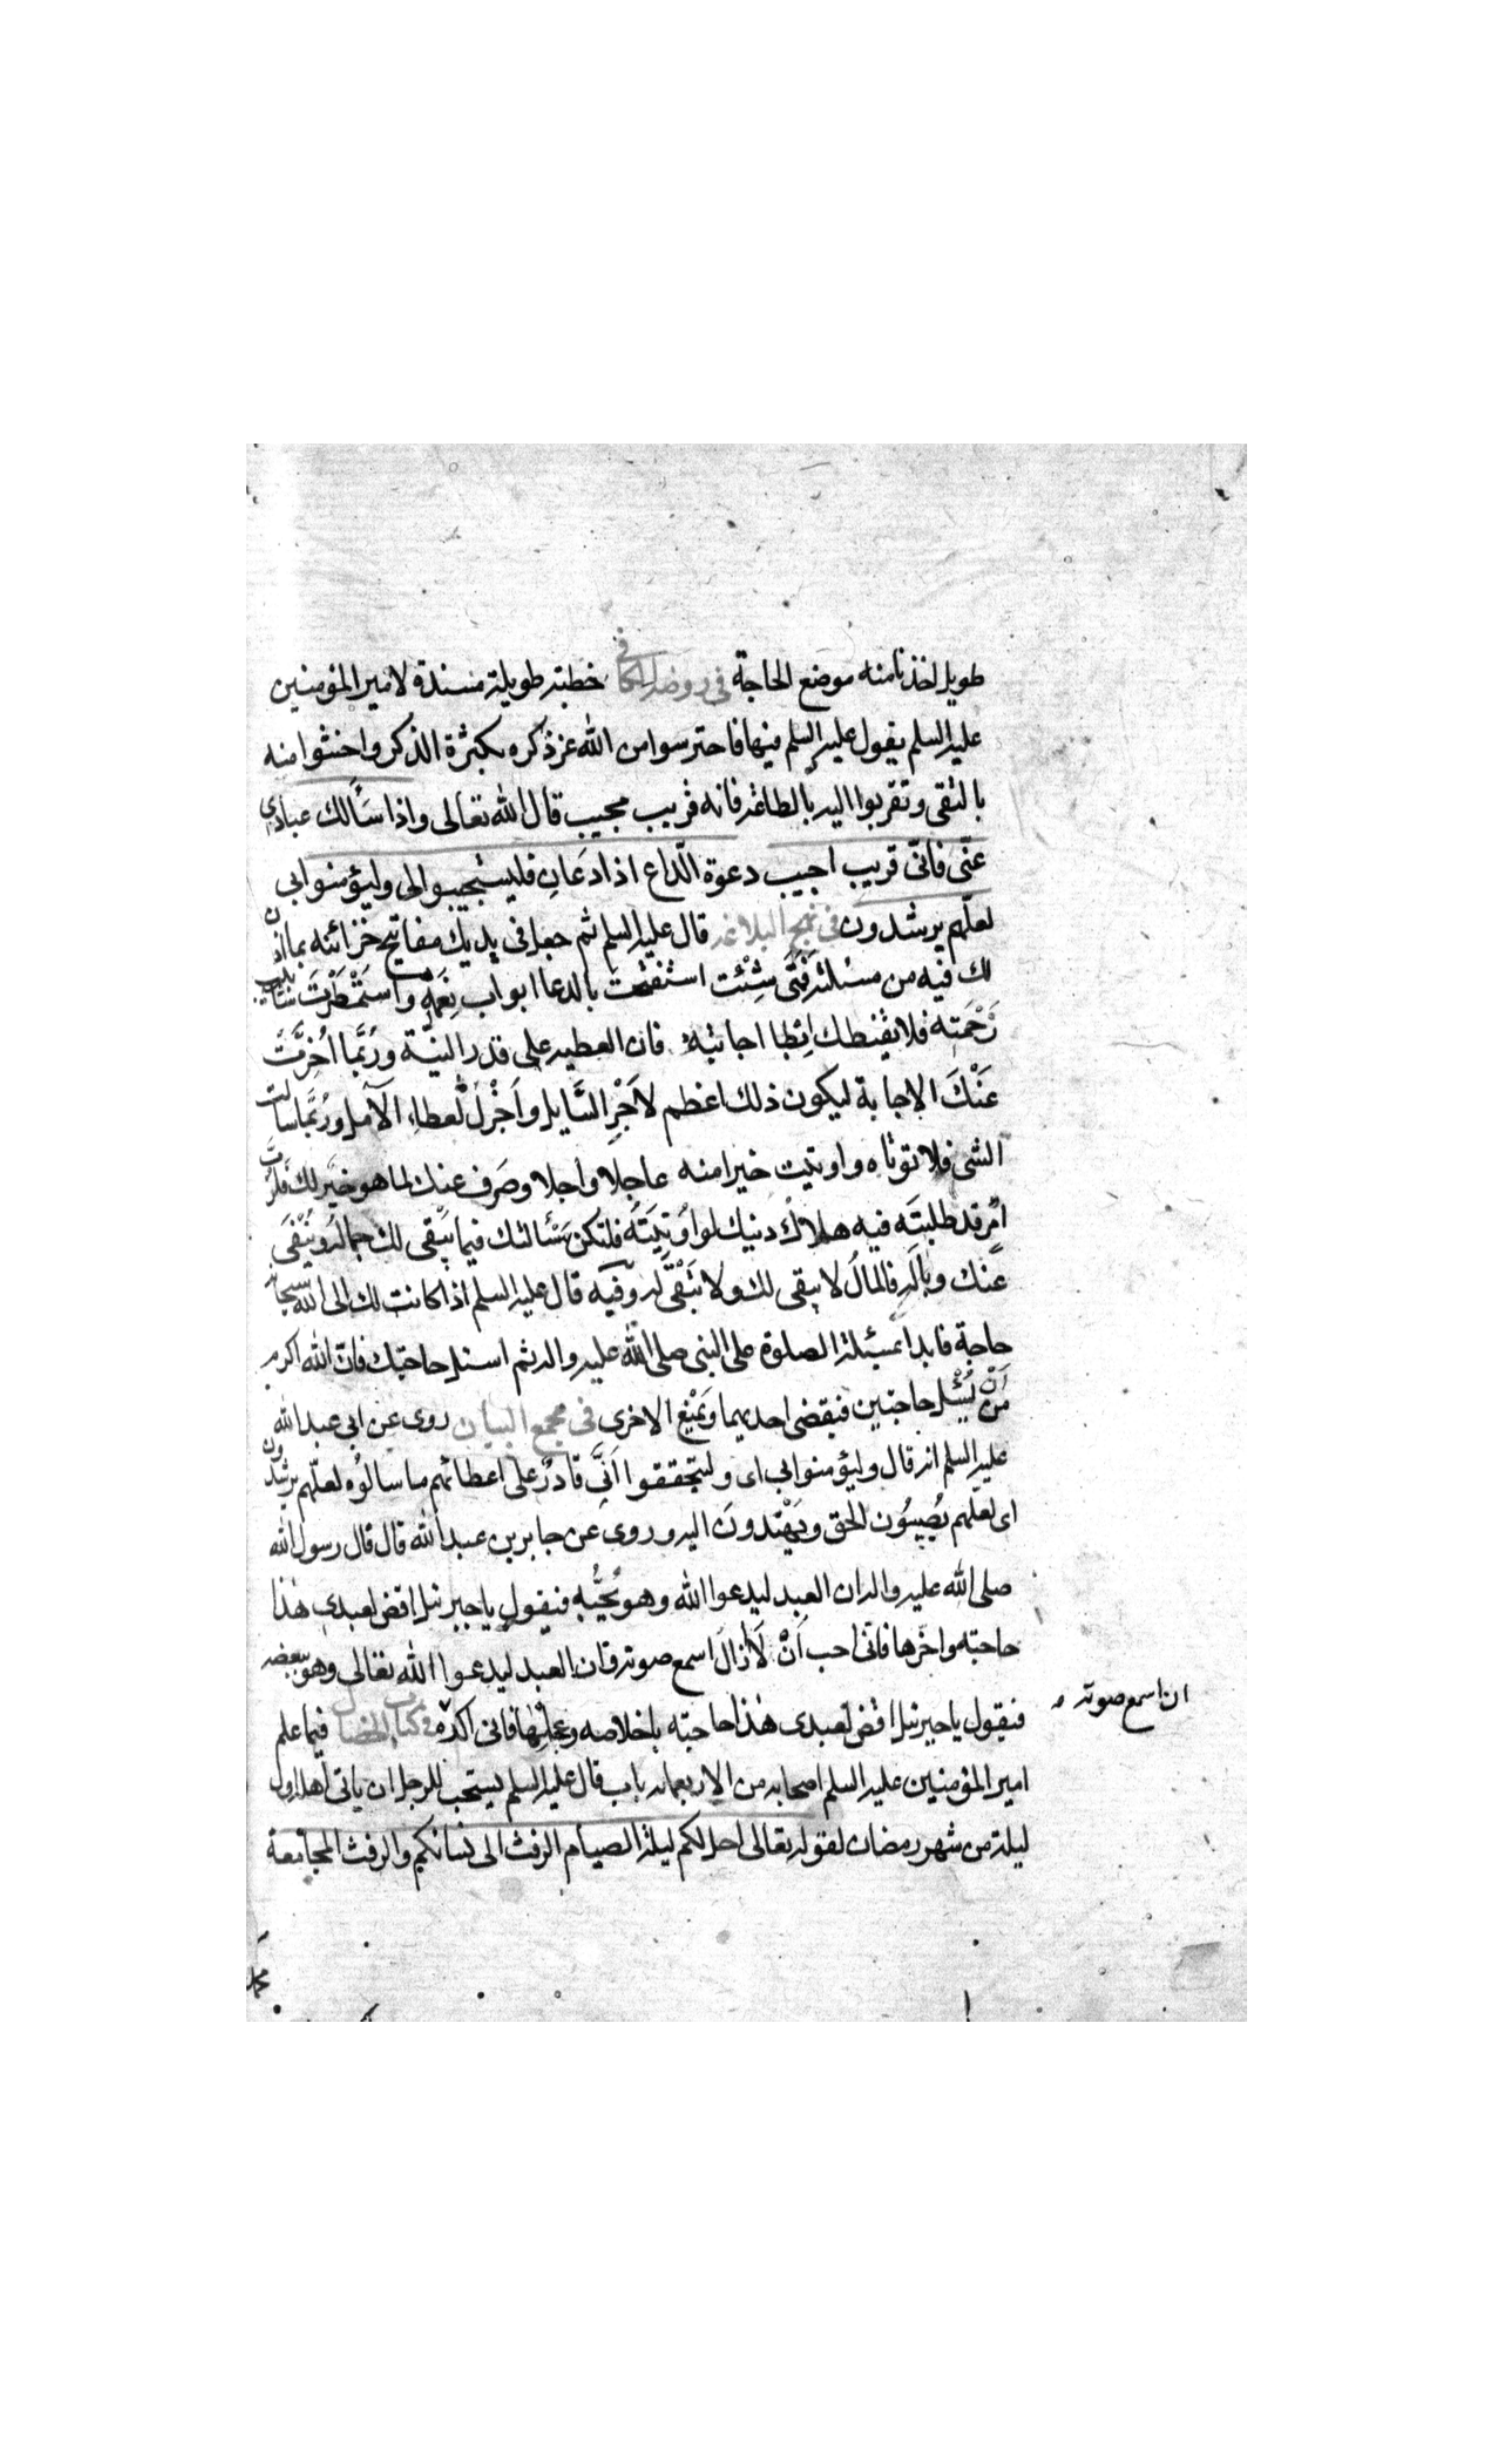 طويل اخذنا منه موضع الحاجة في روضة الكافي خطبة طويلة مسندة لامير المؤمنين
عليه السلم يقول عليه السلم فيها فاحترسوا من الله عز ذكره بكثرة الذكر واخشوا منه
بالتقى وتقربوا اليه بالطاعة فانه قريب مجيب قال الله تعالى واذا سَاَلك عبادي
عنّى فانّى قريب اجيب دعوة الّداع اذا دَعَانِ فليستجيبوا لى وليؤمنوا بى
لعلّهم يرشدون في نهج البلاغه قال عليه السلم ثم جعل في يديك مفاتيح خزائنه بما اذن
لك فيه من مسئلته فمَتَى شِئْت استفتحت بالدعا ابواب نِعَمِه واستَمْطَرْتَ شئابيب
رَحْمَتِه فلا يقنطك اِبْطا اجابته فان العطيه على قدر النيّة وربّما اُخِرَّتْ
عَنْكَ الاجابة ليكون ذلك اعظم لاَجْرِ السَّايل واَجْزلَ لعطاء الآمل ورُبَّما سالت
الشى فلا توتاه واوتيت خيرا منه عاجلا واجلا وصَرِف عنك لما هو خيَر لك فلرُبَّ
امْرٍ قد طلبتَه فيه هلاك دنيك لو اوُتِيَتَه فلتكن مَسْئالتك فيما يَبْقى لك جماله ويُنْفَى
عَنك وبالُه فالمالُ لا يبقى لك ولا تَبْقَى له وفيه قال عليه السلم اذا كانت لك الى الله سبحانه
حاجة فابدا بمسئلة الصلوة على النبى صلى الله عليه واله ثم اسئل حاجتك فانّ الله اكرم
من اَنْ يُسْئل حاجتين فيقضى احديهما ويَمْنع الاخرى في مجمع البيان روى عن ابى عبد الله
عليه السلم انه قال وليؤمنوا بى اى وليتحققوا اَنِّى قادرٌ على اعطائهم ما سالوُه لعلّهم يرشدون
اى لعلهم يُصِيبُون الحق ويَهْتدونَ اليه وروى عن جابر بن عبد الله قال قال رسول الله
صلى الله عليه واله ان العبد ليدعوا الله وهو يُحبُّهِ فيقول يا جبرئيل اقض لعبدي هذا
حاجته واخّرها فانى احب اَنْ لاَ ازالَ اسمع صوته وان العبد ليدعوا الله تعالى وهو يبغضه
فيقول يا جبرئيل اقض لعبدى هذا حاجته باخلاصه وعجّلها فانى اكره في كتاب الخصال فيما علم
ان اسمع صوته
امير المؤمنين عليه السلم اصحابه من الاربعمائه باب قال عليه السلم يستحب للرجل ان ياتى اهله اول
ليلة من شهر رمضان لقوله تعالى احل لكم ليلة الصيام الرفث الى نسائكم والرفث المجامعة